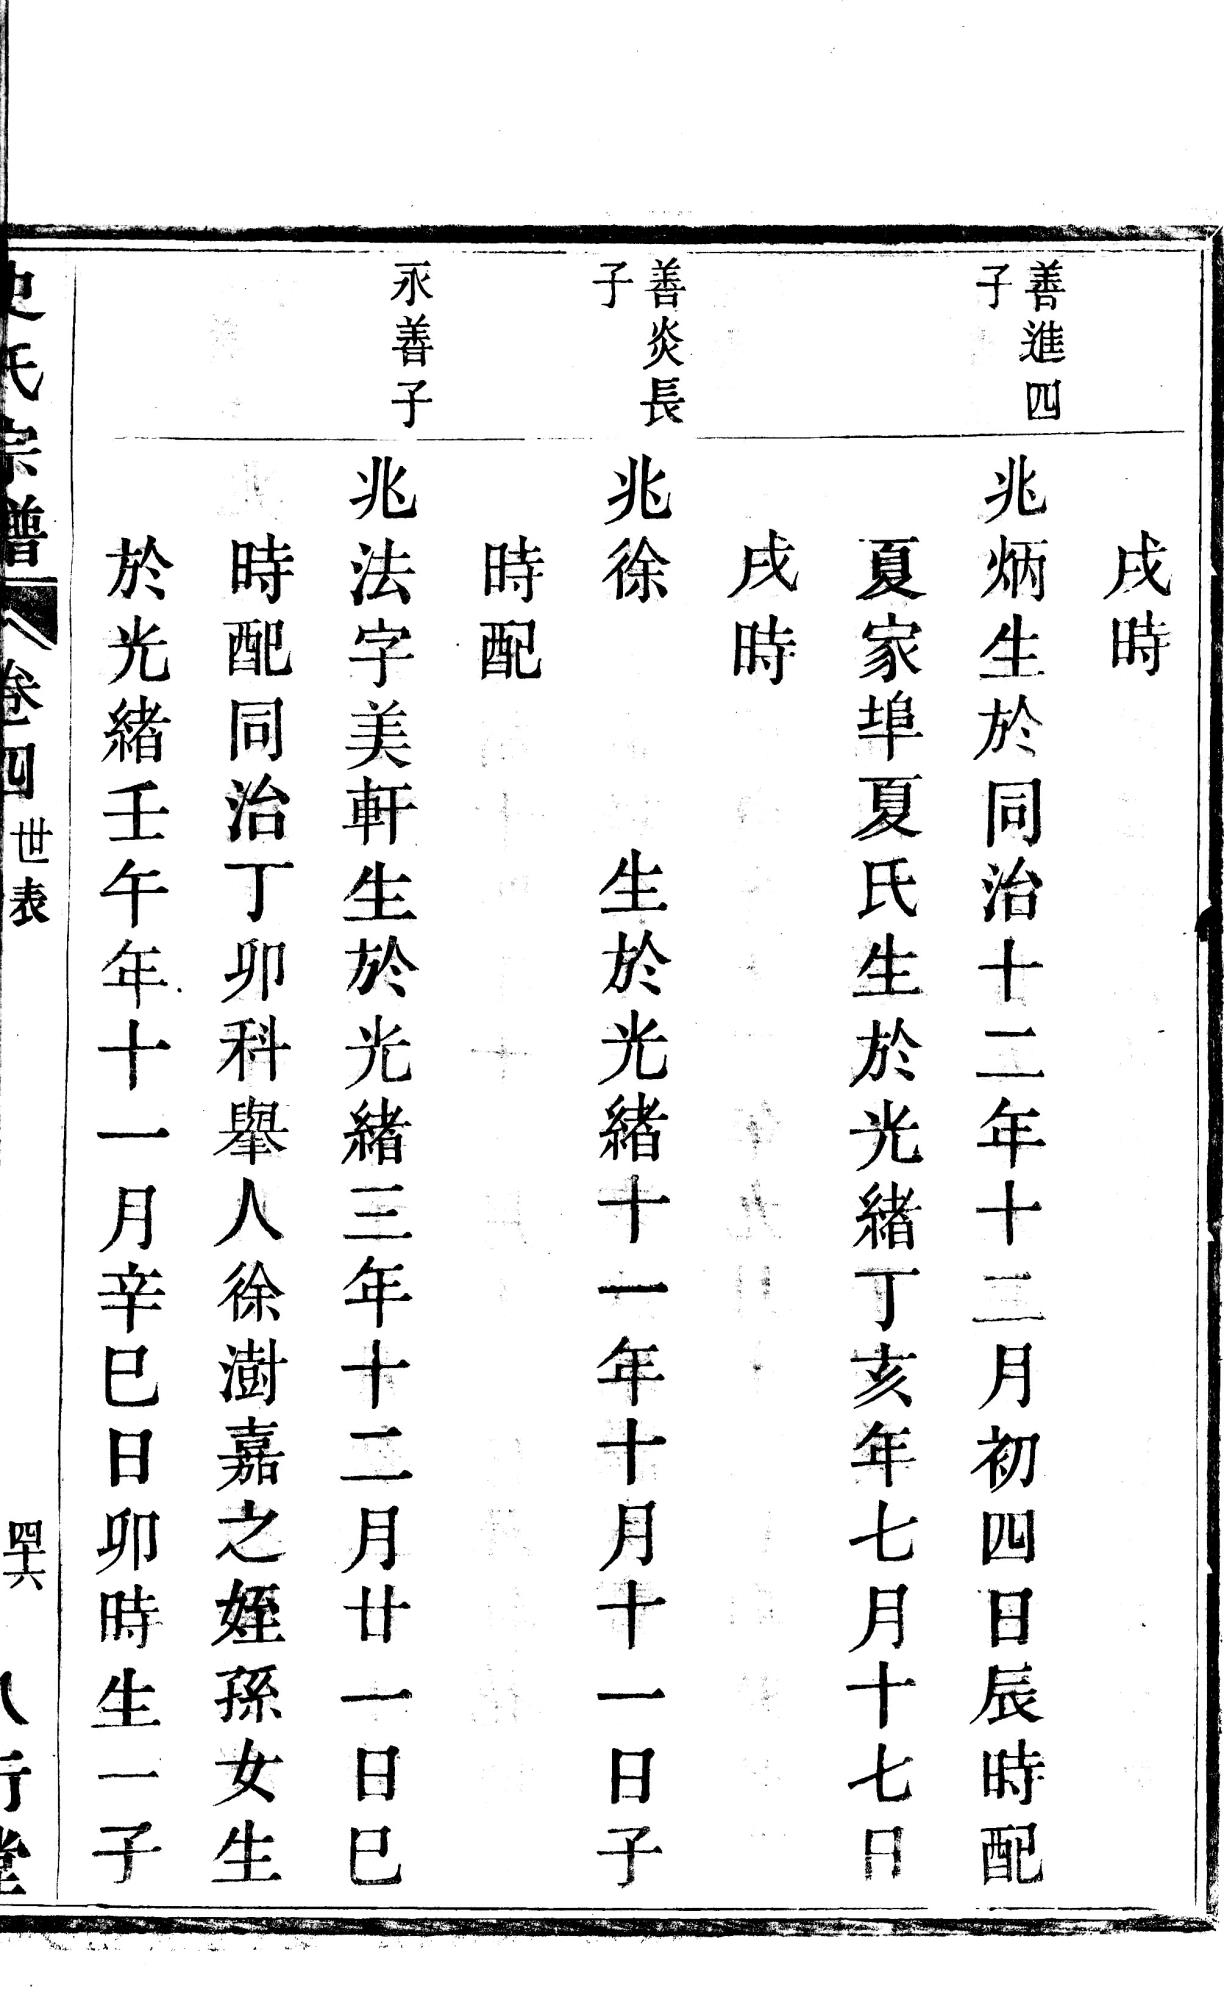 戌時
善進四
子
兆炳生於同治十二年十二月初四日辰時配
夏家埠夏氏生於光緒丁亥年七月十七日
戌時
善炎長
子
兆徐　生於光緒十一年十月十一日子
時配
永善子
兆法字美軒生於光緒三年十二月廿一日巳
時配同治丁卯科舉人徐澍嘉之姪孫女生
於光緒壬午年十一月辛巳日卯時生一子
史氏宗譜　卷四　世表　四十六　八行堂